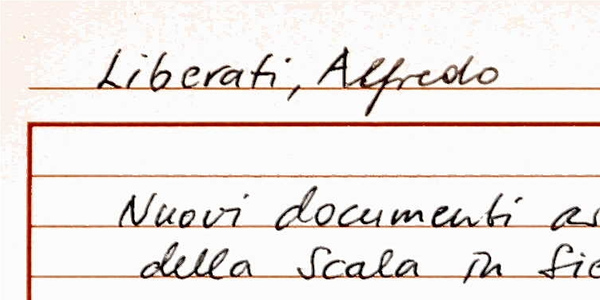 Liberati, Alfredo
Nuovi documenti as
della Scala in Sie